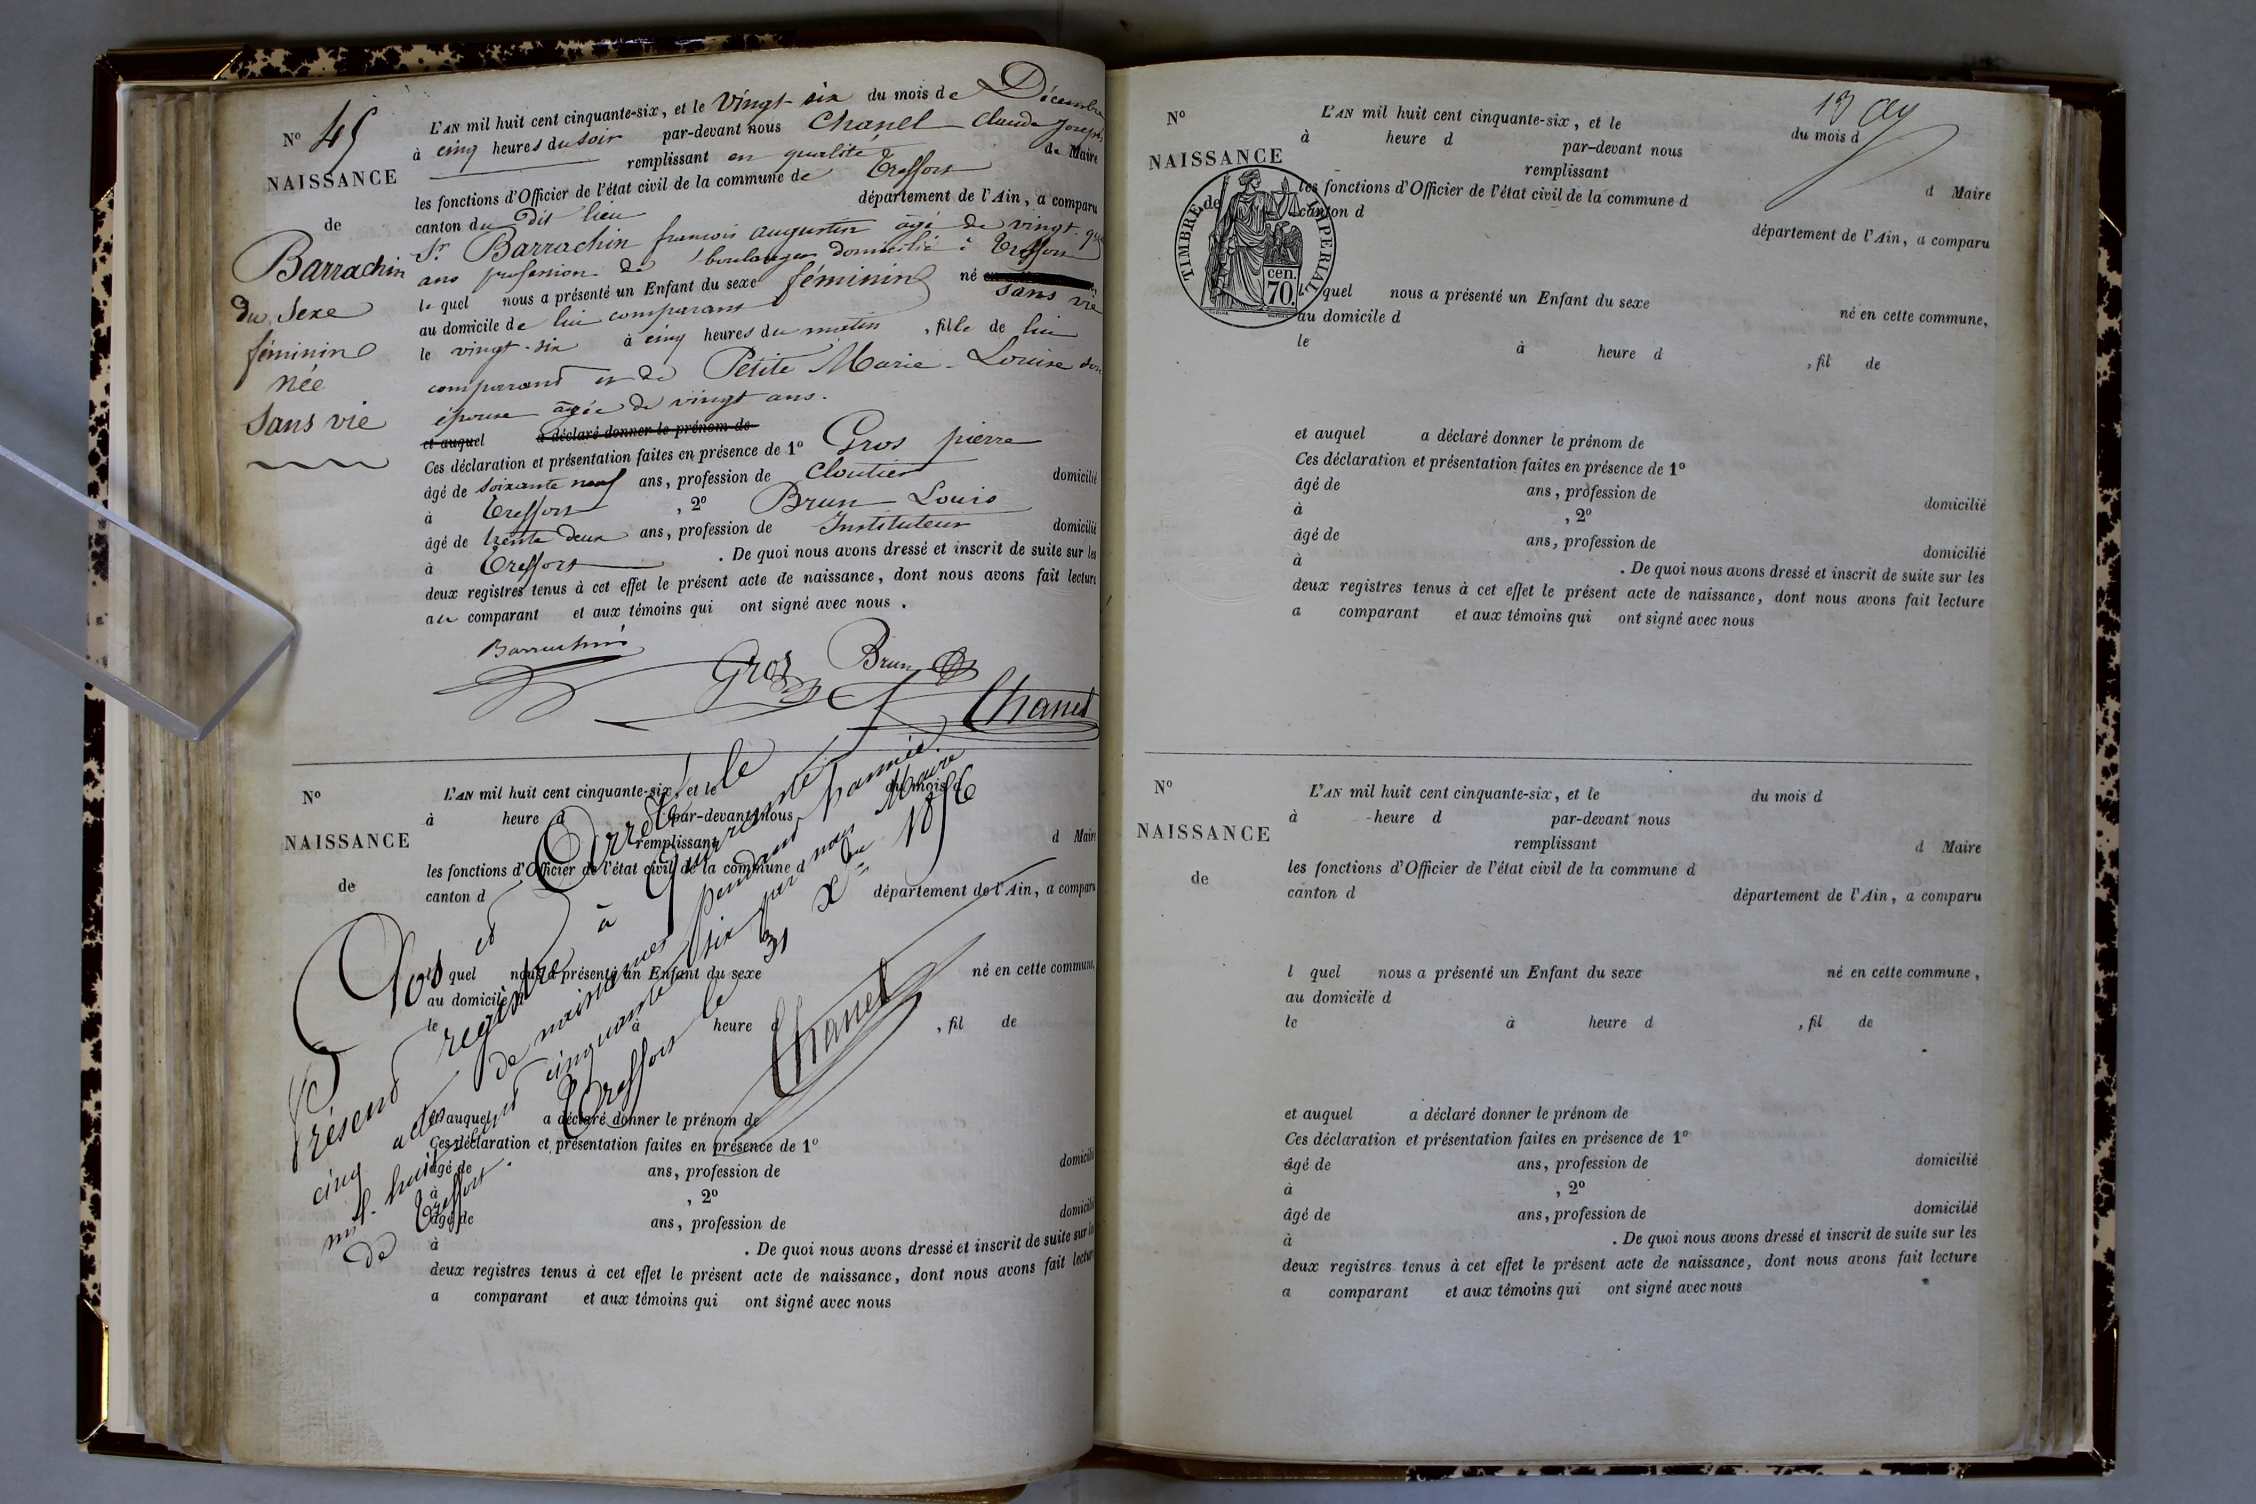 N° 45
NAISSANCE
de
Barrachin
du Sexe
féminin
née
Sans vie
L'AN mil huit cent cinquante-six, et le Vingt-six du mois de Décembre
à cinq heures du soir par-devant nous Chanel Claude Joseph
remplissant en qualité de Maire
les fonctions d'Officier de l'état civil de la commune de Treffort
canton du Dit lieu département de l'Ain, a comparu
Sr Barrachin françois augustin âgé de vingt-
ans profession de boulanger domicilié à Treffort
le quel nous a présenté un Enfant du sexe féminin né sans vie
au domicile de lui comparant
le vingt-six à cinq heures du matin, fille de lui
comparant et de Petite Marie-Louise son
épouse âgée de vingt ans.
et auquel a déclaré donner le prénom de
Ces déclaration et présentation faites en présence de 1° Gros pierre
âgé de soixante neuf ans, profession de Cloutier domicilié
à Treffort, 2° Brun Louis
âgé de trente deux ans, profession de Instituteur domicilié
à Treffort. De quoi nous avons dressé et inscrit de suite sur les
deux registres tenus à cet effet le présent acte de naissance, dont nous avons fait lecture
au comparant et aux témoins qui ont signé avec nous.
Barrachin
Gros Brun
Chanel
N°
NAISSANCE
de
L'AN mil huit cent cinquante-six, et le du mois d
à heure d par-devant nous
remplissant d Maire
les fonctions d'Officier de l'état civil de la commune d
canton d département de l'Ain, a comparu
l quel nous a présenté un Enfant du sexe né en cette commune,
au domicile d
le à heure d , fil de
et auquel a déclaré donner le prénom de
Ces déclaration et présentation faites en présence de 1°
âgé de ans, profession de domicilié
à , 2°
âgé de ans, profession de domicilié
à . De quoi nous avons dressé et inscrit de suite sur les
deux registres tenus à cet effet le présent acte de naissance, dont nous avons fait lecture
a comparant et aux témoins qui ont signé avec nous
Clos et Arrêté le
présent registre à quarante
cinq actes de naissances pendant l'année
mil huit cent cinquante six par nous Maire
de Treffort.
Treffort le 31 Xbre 1856
Chanel
13
N°
NAISSANCE
de
TIMBRE IMPERIAL
70 cen.
L'AN mil huit cent cinquante-six, et le du mois d
à heure d par-devant nous
remplissant d Maire
les fonctions d'Officier de l'état civil de la commune d
canton d département de l'Ain, a comparu
l quel nous a présenté un Enfant du sexe né en cette commune,
au domicile d
le à heure d , fil de
et auquel a déclaré donner le prénom de
Ces déclaration et présentation faites en présence de 1°
âgé de ans, profession de domicilié
à , 2°
âgé de ans, profession de domicilié
à . De quoi nous avons dressé et inscrit de suite sur les
deux registres tenus à cet effet le présent acte de naissance, dont nous avons fait lecture
a comparant et aux témoins qui ont signé avec nous
N°
NAISSANCE
de
L'AN mil huit cent cinquante-six, et le du mois d
à heure d par-devant nous
remplissant d Maire
les fonctions d'Officier de l'état civil de la commune d
canton d département de l'Ain, a comparu
l quel nous a présenté un Enfant du sexe né en cette commune,
au domicile d
le à heure d , fil de
et auquel a déclaré donner le prénom de
Ces déclaration et présentation faites en présence de 1°
âgé de ans, profession de domicilié
à , 2°
âgé de ans, profession de domicilié
à . De quoi nous avons dressé et inscrit de suite sur les
deux registres tenus à cet effet le présent acte de naissance, dont nous avons fait lecture
a comparant et aux témoins qui ont signé avec nous